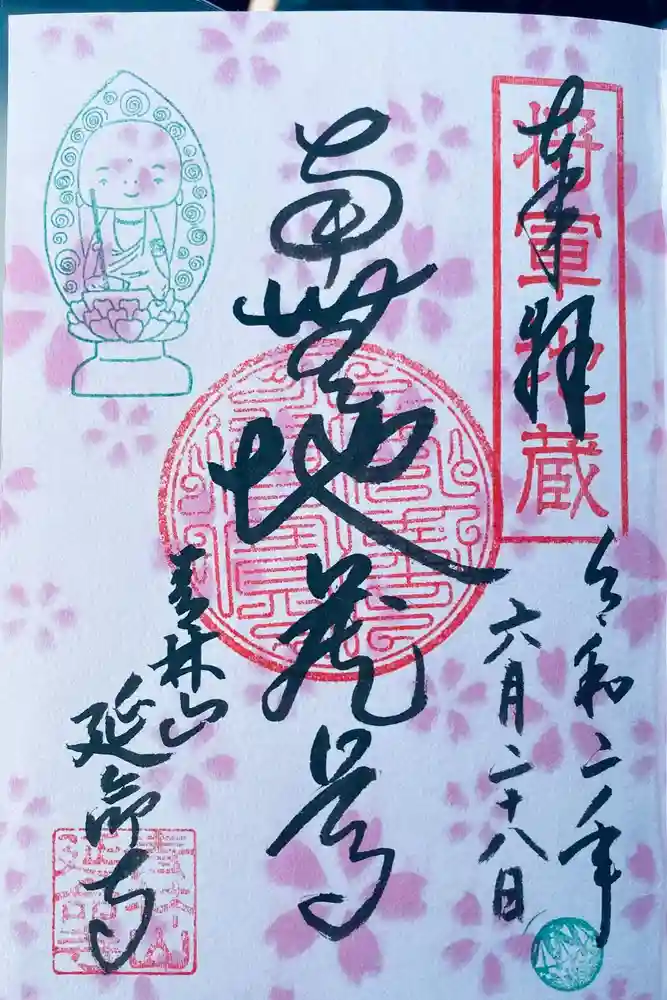 奉拝
将軍地蔵
令和二年
六月二十八日
南無地蔵尊
青林山
延命寺